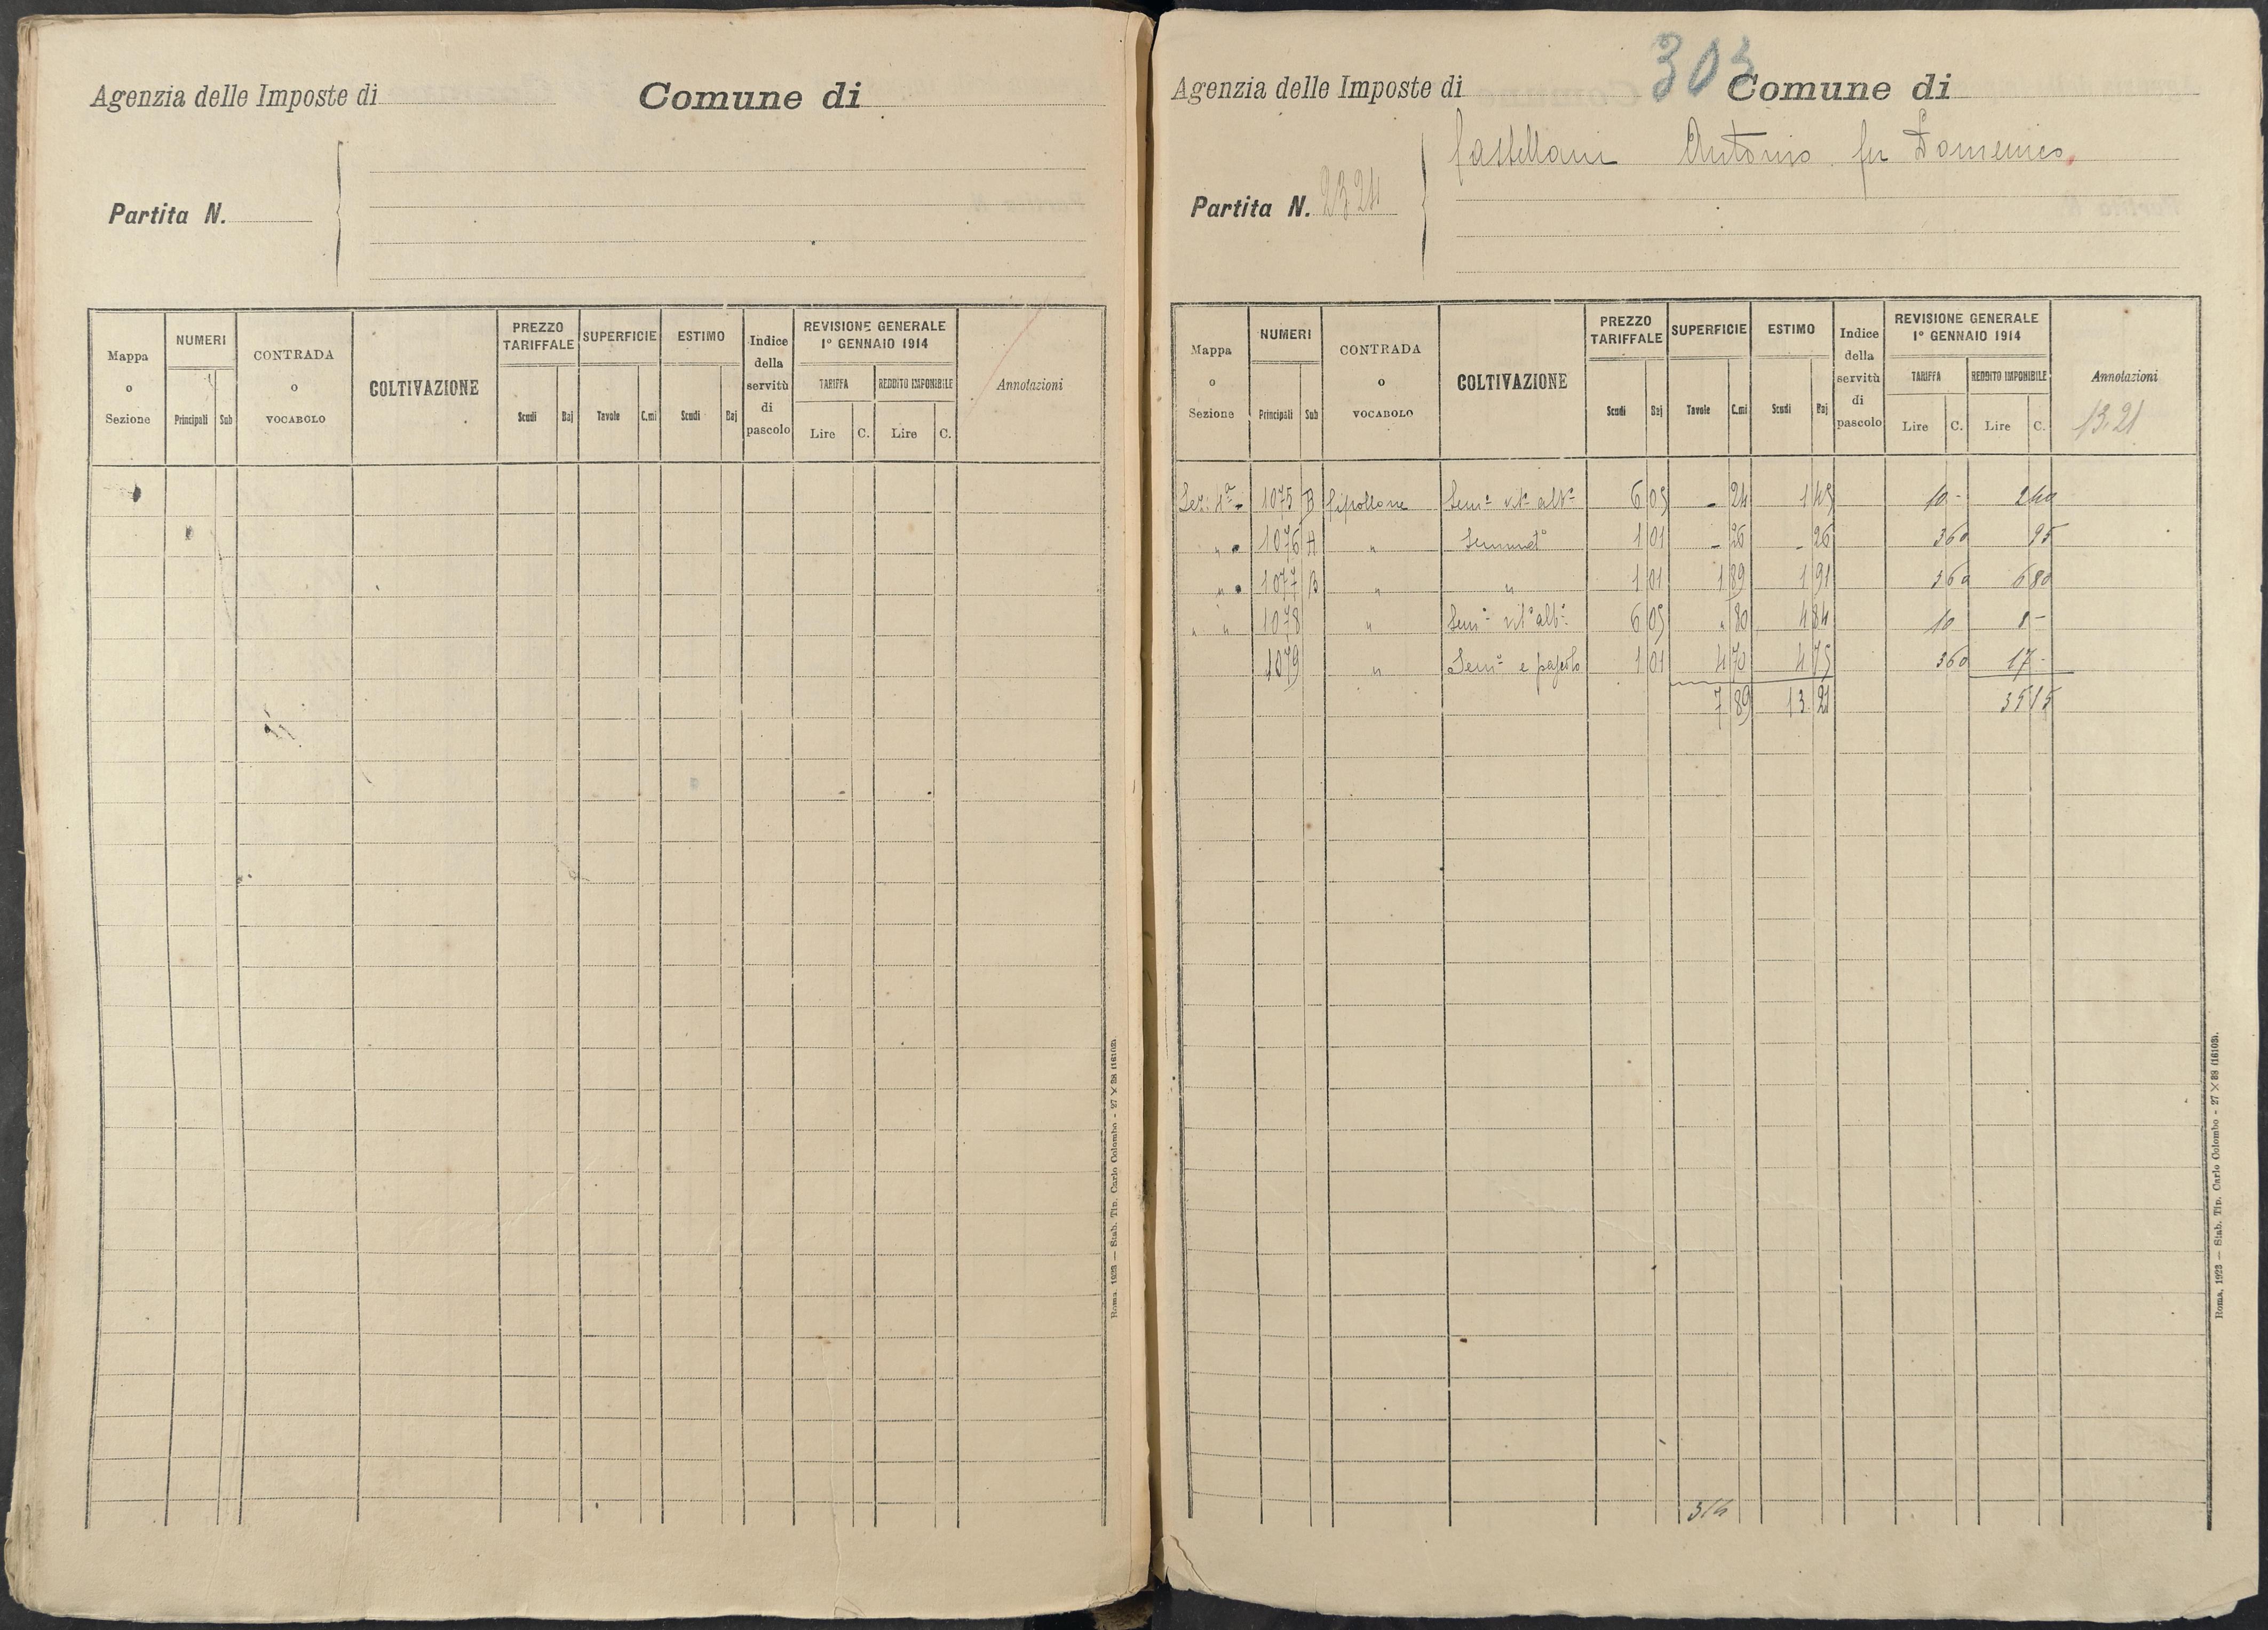 Agenzia delle Imposte di Comune di
Partita N.
Mappa o Sezione NUMERI Principali Sub CONTRADA o VOCABOLO COLTIVAZIONE PREZZO TARIFFALE Scudi Baj SUPERFICIE Tavole C.mi ESTIMO Scudi Baj Indice della servitù di pascolo REVISIONE GENERALE 1° GENNAIO 1914 TARIFFA Lire C. REDDITO IMPONIBILE Lire C. Annotazioni
Roma, 1923 — Stab. Tip. Carlo Colombo - 27 × 38 (16103).
303
Agenzia delle Imposte di Comune di
Castellani Antonio fu Domenico
Partita N. 2324
Mappa o Sezione NUMERI Principali Sub CONTRADA o VOCABOLO COLTIVAZIONE PREZZO TARIFFALE Scudi Baj SUPERFICIE Tavole C.mi ESTIMO Scudi Baj Indice della servitù di pascolo REVISIONE GENERALE 1° GENNAIO 1914 TARIFFA Lire C. REDDITO IMPONIBILE Lire C. Annotazioni
13,21
Sez: 4ª 1075 B Cipollone Sem° vit° alb° 6 05 - 24 1 45 10 - 2 40
" 1076 A " Seminat° 1 01 - 26 - 26 3 60 95
" 1077 B " " 1 01 1 89 1 91 3 60 6 80
" " 1078 " Sem° vit° alb° 6 05 " 80 4 84 10 8 -
1079 " Sem° e pascolo 1 01 4 70 4 75 3 60 17 -
7 89 13 21 35 15
314
Roma, 1923 — Stab. Tip. Carlo Colombo - 27 × 38 (16103).